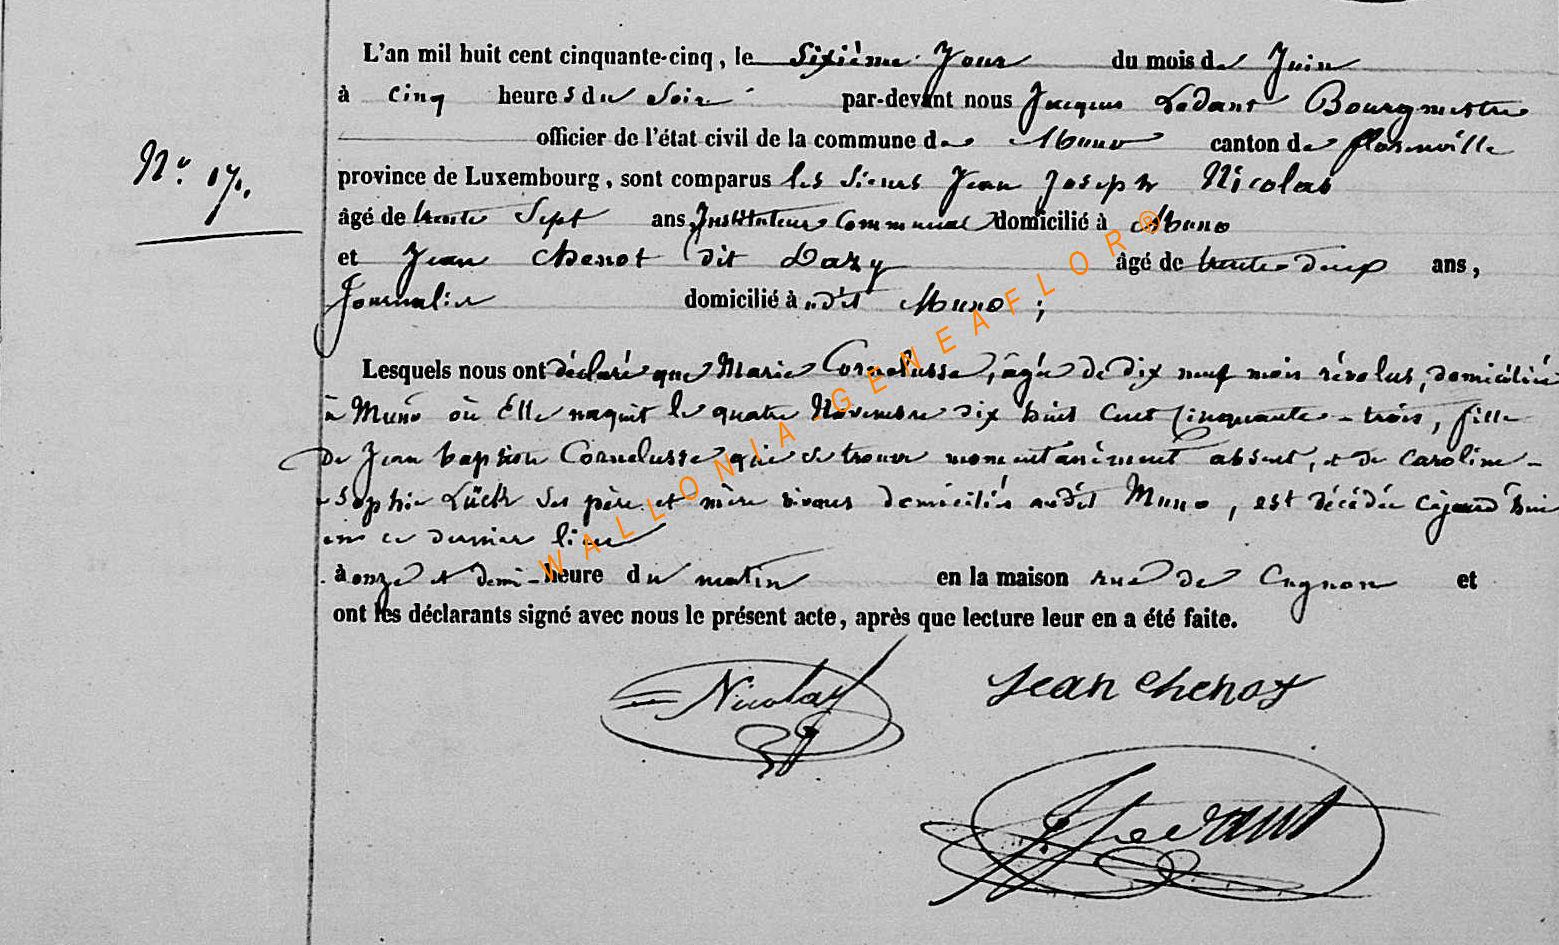 L'an mil huit cent cinquante-cinq, le Sixième Jour du mois de Juin
à cinq heures du Soir par-devant nous Jacques Ledant Bourgmestre
officier de l'état civil de la commune de Muno canton de florenville
N° 17.
province de Luxembourg, sont comparus les Sieurs Jean Joseph Nicolas
âgé de trente Sept ans, Instituteur Communal domicilié à Muno
et Jean Chenot dit Dazy âgé de trente deux ans,
Journalier domicilié à dit Muno;
Lesquels nous ont déclaré que Marie Cornelusse, âgée de dix neuf mois révolus, domiciliée
à Muno où Elle naquit le quatre Novembre dix huit Cent Cinquante-trois, fille
de Jean baptiste Cornelusse qui se trouve momentanément absent, et de Caroline-
Sophie Lück ses père et mère vivans domiciliés audit Muno, est décédée Cejourd'hui
en ce dernier lieu
à onze et demi-heure du matin en la maison rue de Cugnon et
ont les déclarants signé avec nous le présent acte, après que lecture leur en a été faite.
Nicolas Jean Chenot
J. Ledant
WALLONIA-GENEAFLOR®